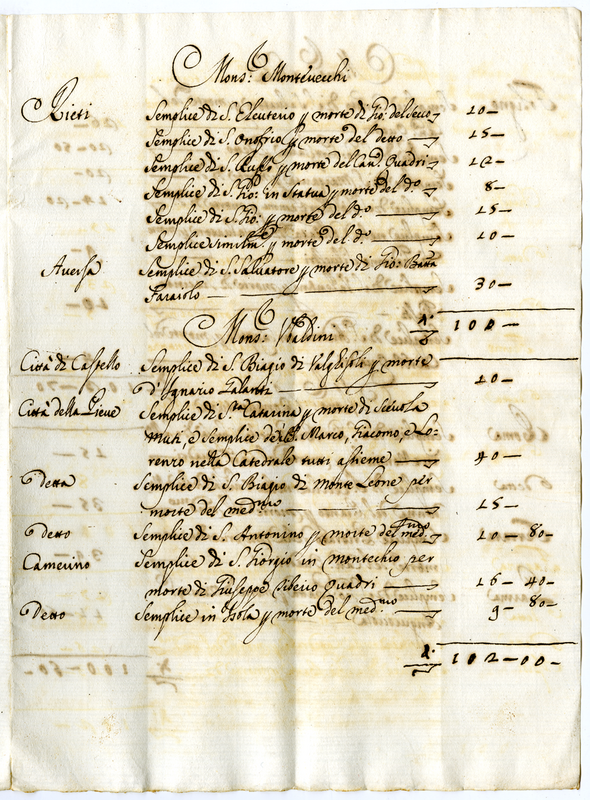 Mons.r Montevecchi
Rieti Semplice di S. Eleuterio p morte di Gio: del Secco 10—
Semplice di S. Onofrio p morte del detto — 15—
Semplice di S. Ruffo p morte del Can.o Quadri — 12—
Semplice di S. Gio: in Statua p morte del d.o — 8—
Semplice di S. Gio: p morte del d.o — 15—
Semplice Simil.e p morte del d.o — 10—
Aversa Semplice di S. Salvatore p morte di Gio: Batta
Faraiolo — 30—
100—
Mons.r Ubaldini
Città di Castello Semplice di S. Biagio di p morte
d'Ignazio Galanti — 10—
Città della Pieve Semplice di S.ta Catarina p morte di Scevola
Muti, e Semplice de SS. Marco, Giacomo, e Lo-
renzo nella Catedrale tutti assieme — 40—
Detta Semplice di S. Biagio di Monte Leone per
morte del med.mo — 15—
Detto Semplice di S. Antonino p morte del med.mo 10—80—
Camerino Semplice di S. Giorgio in Montechio per
morte di Giuseppe Quadri — 16—40—
Detto Semplice in Isola p morte del med.mo — 9—80—
102—00—